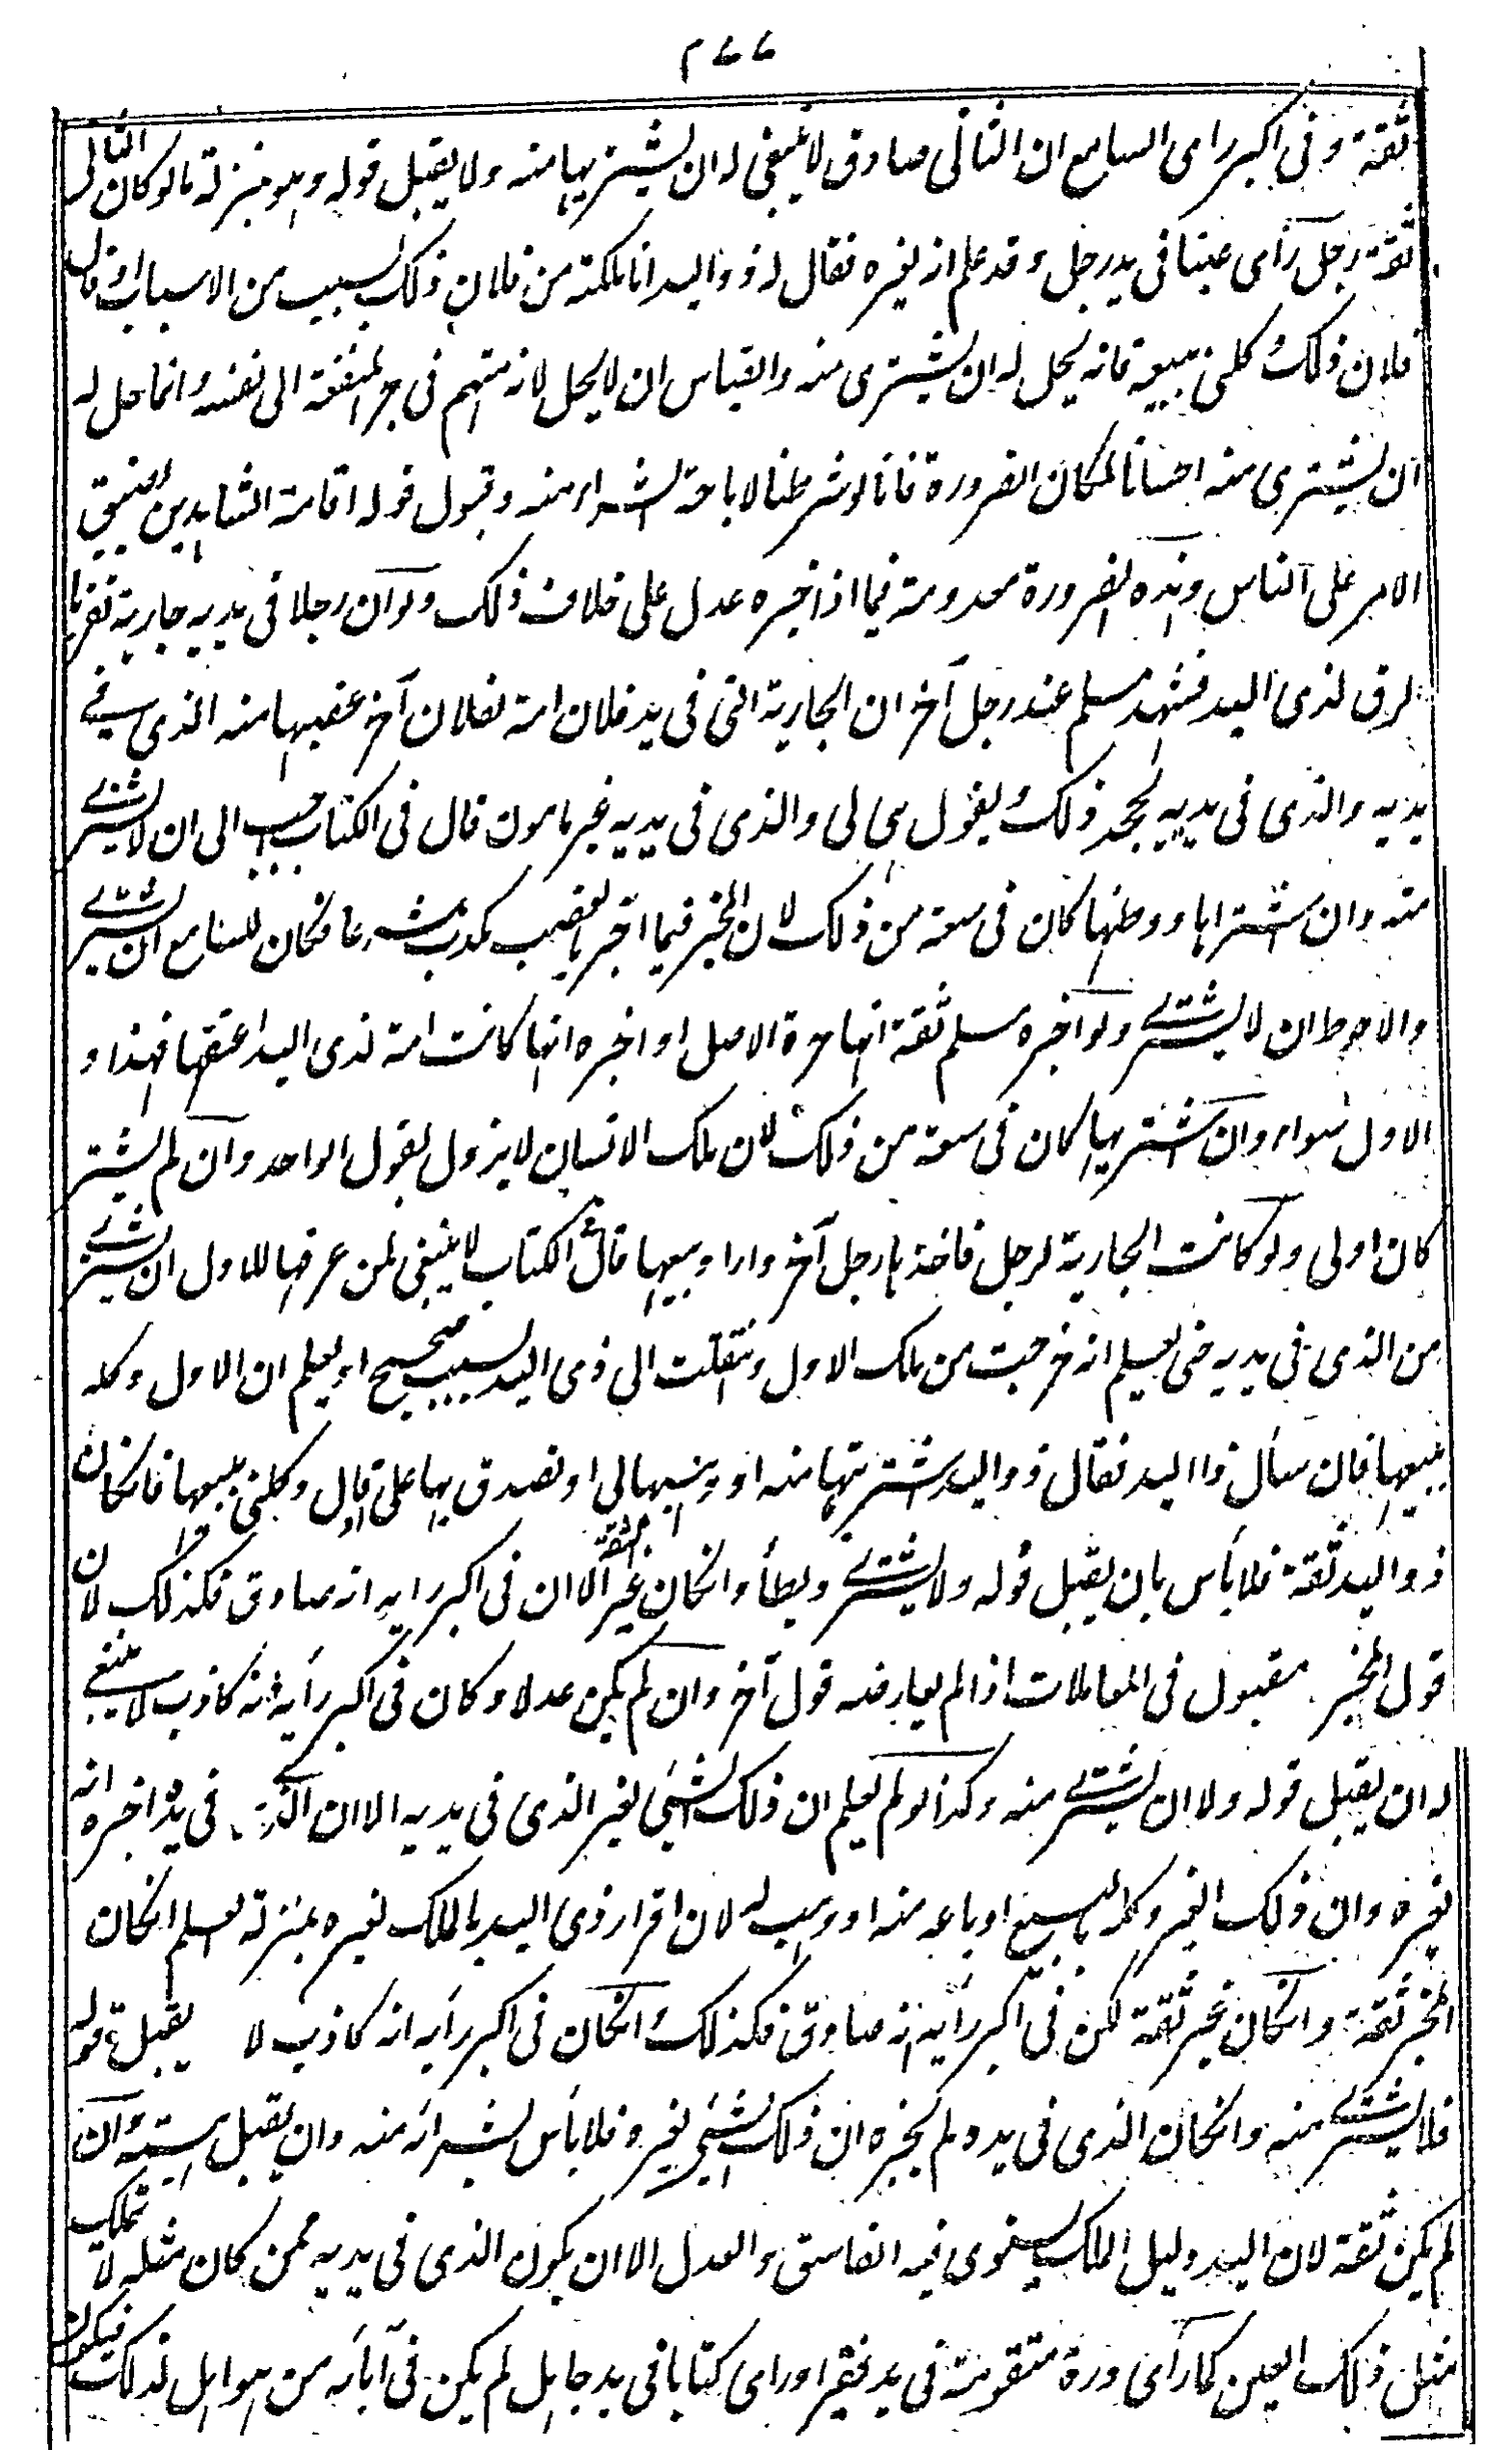 م٤٤
ثقة وفى اكبر راى السامع ان الثانى صادق لا ينبغى له ان يشتريها منه ولا يقبل قوله وهو بمنزلة ما لو كان الثانى
ثقة رجل رآى عينا فى يد رجل وقد علم انه لغيره فقال له ذو اليد انا ملكته من فلان ذلك بسبب من الاسباب او قال
فلان ذلك وكلنى ببيعه فانه يحل له ان يشترى منه والقياس ان لا يحل لانه متهم فى جر المنفعة الى نفسه وانما حل له
ان يشترى منه احسانا لمكان الضرورة فانا لو شرطنا لاباحة الشراء منه وقبول قوله اقامة الشاهدين لضيق
الامر على الناس وهذه الضرورة معدومة فيما اذا اخبره عدل على خلاف ذلك ولو ان رجلا فى يديه جارية تقر بالـ
لرق لذى اليد فشهد مسلم عند رجل آخر ان الجارية التى فى يد فلان امة لفلان آخر غصبها منه الذى فى
يديه والذى فى يديه يجحد ذلك ويقول هى لى والذى فى يديه غير مامون قال فى الكتاب احب الى ان لا يشترى
منه وان اشتراها ووطئها كان فى سعة من ذلك لان المخبر فيما اخبر بالغصب مكذب شرعا فكان للسامع ان يشترى
والاحوط ان لا يشترى ولو اخبره مسلم ثقة انها حرة الاصل او اخبره انها كانت امة لذى اليد اعتقها فهذا و
الاول سواء وان اشتريها كان فى سعة من ذلك لان ملك الانسان لا يزول بقول الواحد وان لم يشتر
كان اولى ولو كانت الجارية لرجل فاخذها رجل آخر واراد بيعها قال فى الكتاب لا ينبغى لمن عرفها للاول ان يشترى
من الذى فى يديه حتى يعلم انه خرجت من ملك الاول وانتقلت الى ذى اليد بسبب صحيح او يعلم ان الاول وكله
ببيعها فان سأل ذا اليد فقال ذو اليد اشتريتها منه او وهبها لى او تصدق بها على او قال وكلنى ببيعها فانكان
ذو اليد ثقة فلا بأس بان يقبل قوله ولا يشترى ويطأ وانكان غير الثقة الا ان فى اكبر رايه انه صادق فكذلك لان
قول المخبر مقبول فى المعاملات اذا لم يعارضه قول آخر وان لم يكن عدلا وكان فى اكبر رأيه انه كاذب لا ينبغى
له ان يقبل قوله ولا ان يشترى منه وكذا لو لم يعلم ان ذلك الشئى لغير الذى فى يديه الا ان الذى فى يده اخبره انه
لغيره وان ذلك الغير وكله بالبيع او باعه منه او وهب له لان اقرار ذى اليد بالملك لغيره بمنزلة لعلم انكان
المخبر ثقة وانكان غير ثقة لكن فى اكبر رأيه انه صادق فكذلك وانكان فى اكبر رأيه انه كاذب لا يقبل قوله
فلا يشترى منه وانكان الذى فى يده لم يخبره ان ذلك الشئى لغيره فلا بأس بشرائه منه وان يقبل هبته وان
لم يكن ثقة لان اليد دليل الملك يستوى فيه الفاسق والعدل الا ان يكون الذى فى يديه ممن كان مثله لا يملك
مثل ذلك العين كما رآى درة متقومة فى يد فقير او راى كتابا فى يد جاهل لم يكن فى آبائه من هو اهل لذلك فيكون